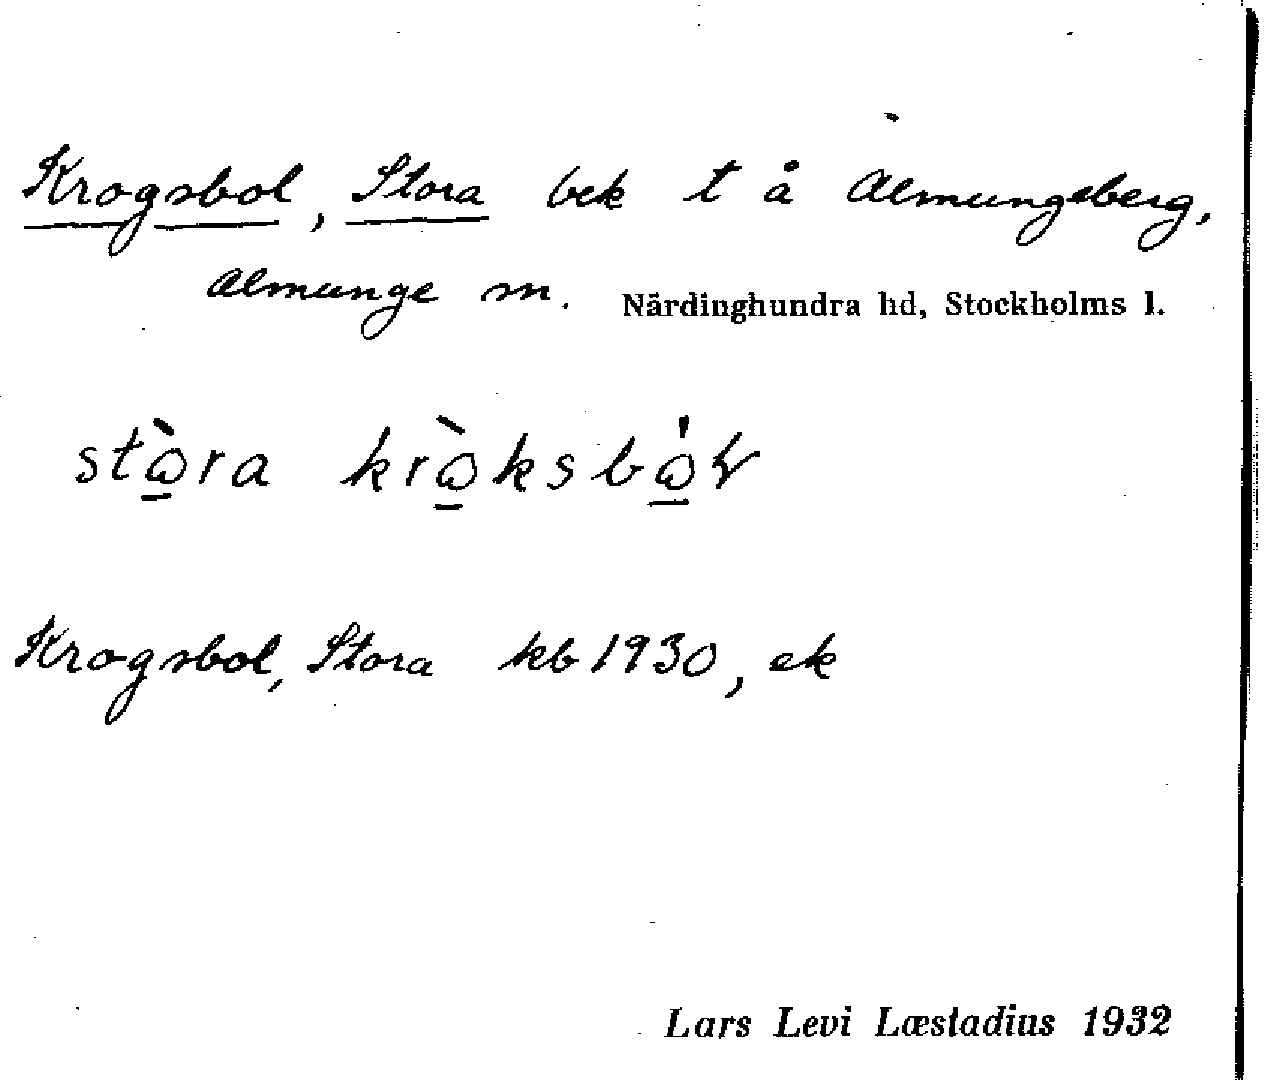 Krogsbol, Stora bek t å Almungeberg,
Almunge sn. Närdinghundra hd, Stockholms l.
stὼ̲ra krὼ̲ksbώ̲ɫ
Krogsbol, Stora kb 1930, ek
Lars Levi Læstadius 1932